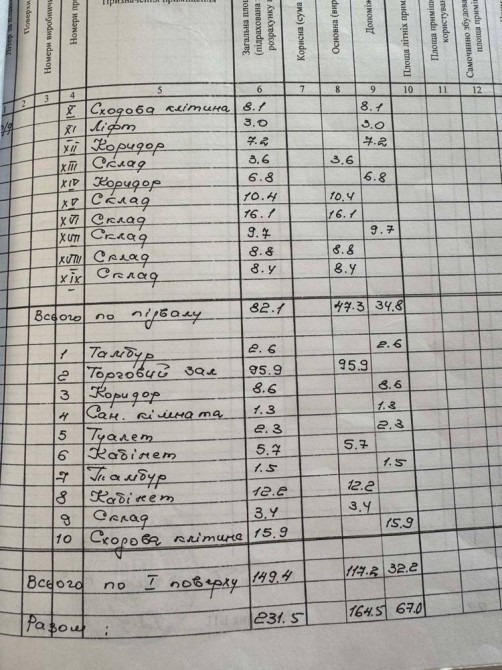 Призначення приміщення
Номери виробничих
Загальна площ
(підрахована
розрахунку
Корисна (сума
Основна (вир
Допоміж
Площа літніх прим
Площа приміщ
користуван
Самочинно збудова
площа примі
1 2 3 4 5 6 7 8 9 10 11 12
X Сходова клітина 8.1 8.1
XI Ліфт 3.0 3.0
XII Коридор 7.2 7.2
XIII Склад 3,6 3,6
XIV Коридор 6.8 6.8
XV Склад 10.4 10,4
XVI Склад 16.1 16.1
XVII Склад 9.7 9.7
XVIII Склад 8.8 8.8
XIX Склад 8.4 8.4
Всього по підвалу 82.1 47.3 34.8
1 Тамбур 2.6 2.6
2 Торговий зал 95.9 95.9
3 Коридор 8.6 8.6
4 Сан. кімната 1.3 1.3
5 Туалет 2.3 2.3
6 Кабінет 5.7 5.7
7 Тамбур 1.5 1.5
8 Кабінет 12.2 12.2
9 Склад 3,4 3,4
10 Сходова клітина 15.9 15.9
Всього по I поверху 149.4 117.2 32.2
Разом : 231.5 164.5 67.0